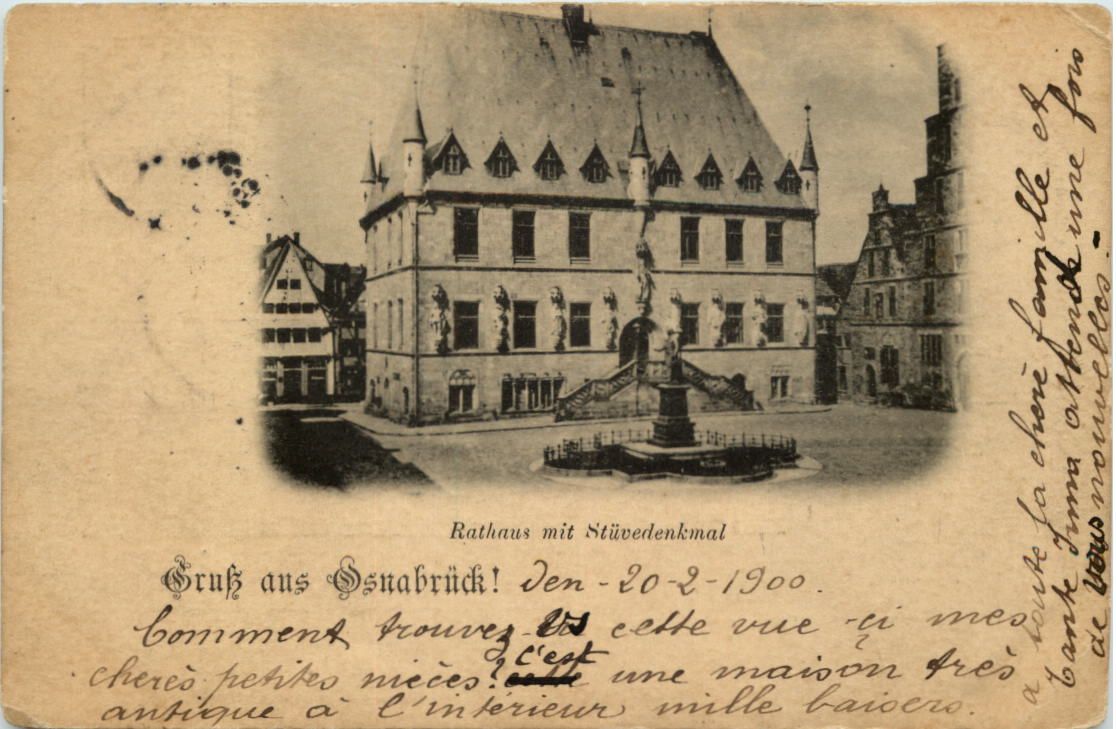 Rathaus mit Stüvedenkmal
Gruß aus Osnabrück! den - 20-2-1900.
Comment trouvez-vs cette vue-ci mes
cherès petites niecès? c'est une maison très
antique à l'intérieur mille baisers.
a toute sa cherè famille et
Tante Imma attends une fois
de vous nouvelles.